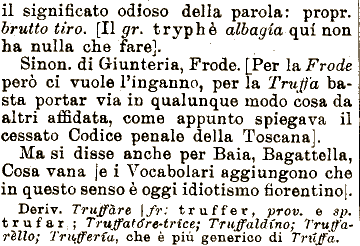 il significato odioso della parola: propr.
brutto tiro. [Il gr. tryphè albagìa quì non
ha nulla che fare].
Sinon. di Giunteria, Frode. [Per la Frode
però ci vuole l'inganno, per la Truffa ba-
sta portar via in qualunque modo cosa da
altri affidata, come appunto spiegava il
cessato Codice penale della Toscana].
Ma si disse anche per Baia, Bagattella,
Cosa vana [e i Vocabolari aggiungono che
in questo senso è oggi idiotismo fiorentino].
Deriv. Truffàre [fr: truffer, prov. e sp.
trufar; Truffatóre-trìce; Truffaldìno; Truffa-
rèllo; Trufferìa, che è più generico di Trúffa.